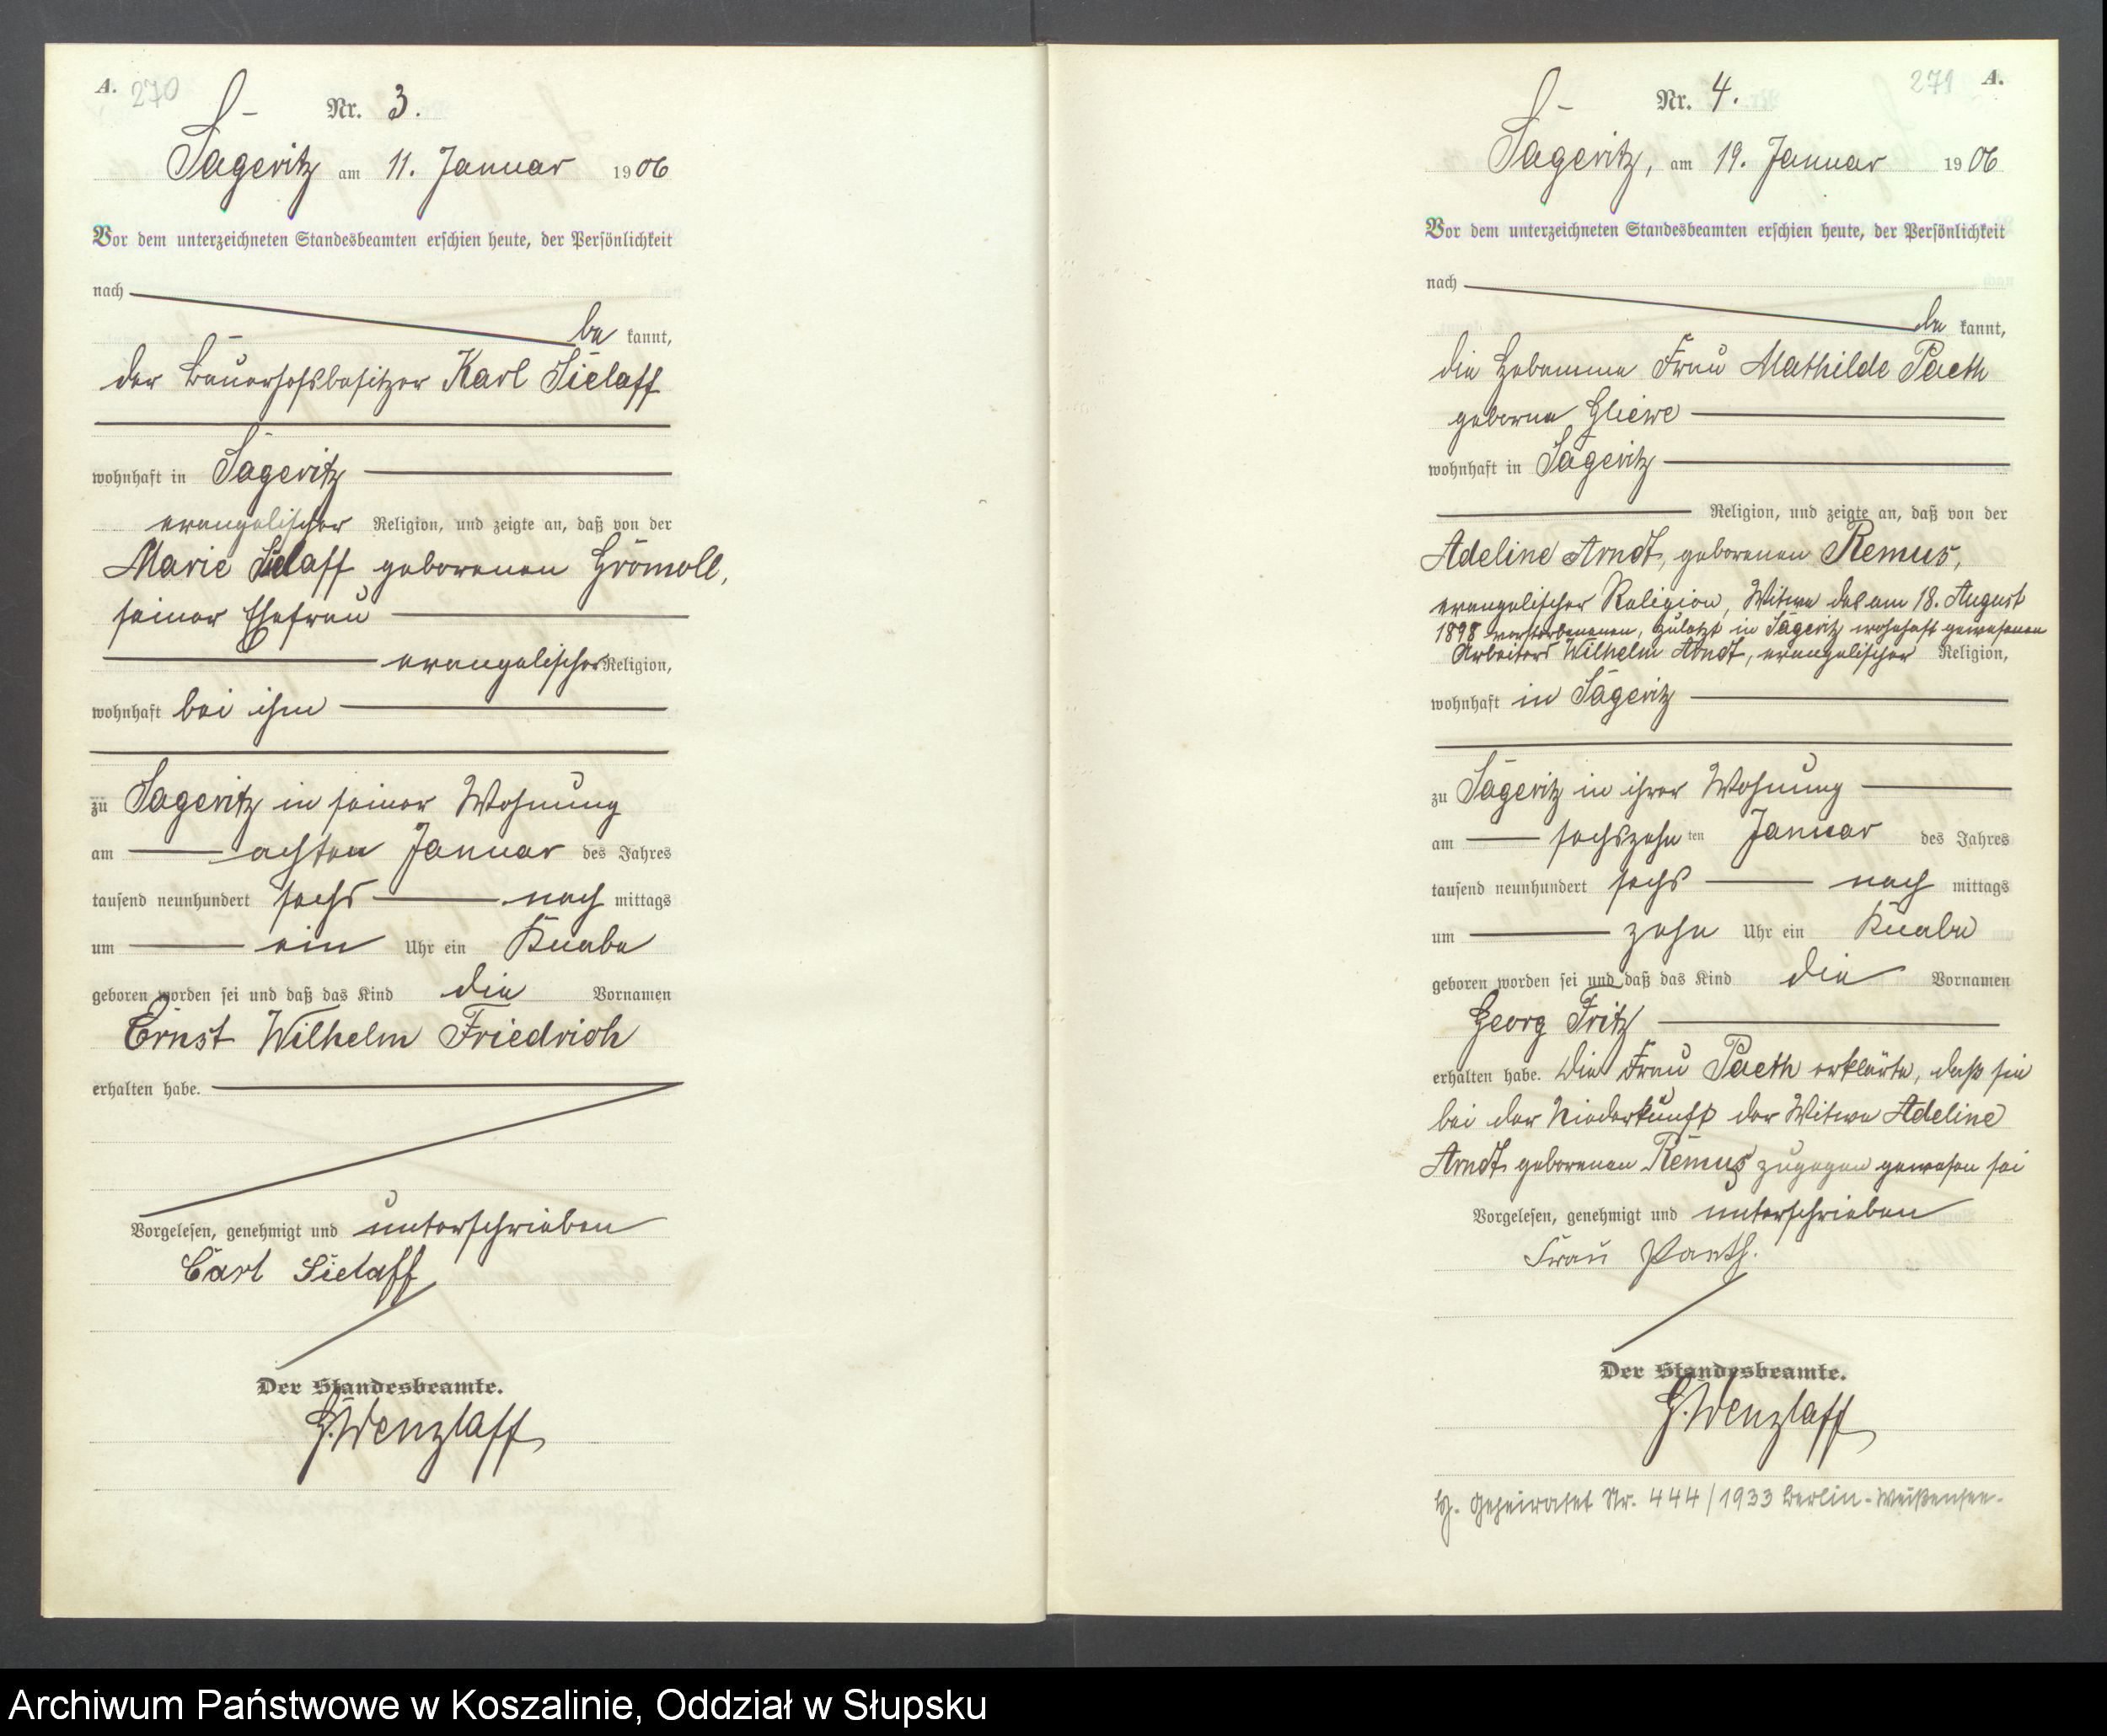 A. 270
Nr. 3.
Sageritz am 11. Januar 1906
Vor dem unterzeichneten Standesbeamten erschien heute, der Persönlichkeit
nach
be kannt,
der Bauerhofsbesitzer Karl Sielaff
wohnhaft in Sageritz
evangelischer Religion, und zeigte an, daß von der
Marie Sielaff geborenen Gromoll,
seiner Ehefrau
evangelischer Religion,
wohnhaft bei ihm
zu Sageritz in seiner Wohnung
am achten Januar des Jahres
tausend neunhundert sechs nach mittags
um ein Uhr ein Knabe
geboren worden sei und daß das Kind die Vornamen
Ernst Wilhelm Friedrich
erhalten habe.
Vorgelesen, genehmigt und unterschrieben
Carl Sielaff
Der Standesbeamte.
G. Wenzlaff
271 A.
Nr. 4.
Sageritz, am 19. Januar 1906
Vor dem unterzeichneten Standesbeamten erschien heute, der Persönlichkeit
nach
be kannt,
die Hebamme Frau Mathilde Paeth
geborne Gliewe
wohnhaft in Sageritz
Religion, und zeigte an, daß von der
Adeline Arndt, geborenen Remus,
evangelischer Religion, Witwe des am 18. August
1898 verstorbenen, zuletzt in Sageritz wohnhaft gewesenen
Arbeiters Wilhelm Arndt, evangelischer Religion,
wohnhaft in Sageritz
zu Sageritz in ihrer Wohnung
am sechszehn ten Januar des Jahres
tausend neunhundert sechs nach mittags
um zehn Uhr ein Knabe
geboren worden sei und daß das Kind die Vornamen
Georg Fritz
erhalten habe. Die Frau Paeth erklärte, daß sie
bei der Niederkunft der Witwe Adeline
Arndt geborenen Remus zugegen gewesen sei
Vorgelesen, genehmigt und unterschrieben
Frau Paeth.
Der Standesbeamte.
G. Wenzlaff
Geheiratet Nr. 444/1933 Berlin-Weißensee.
Archiwum Państwowe w Koszalinie, Oddział w Słupsku